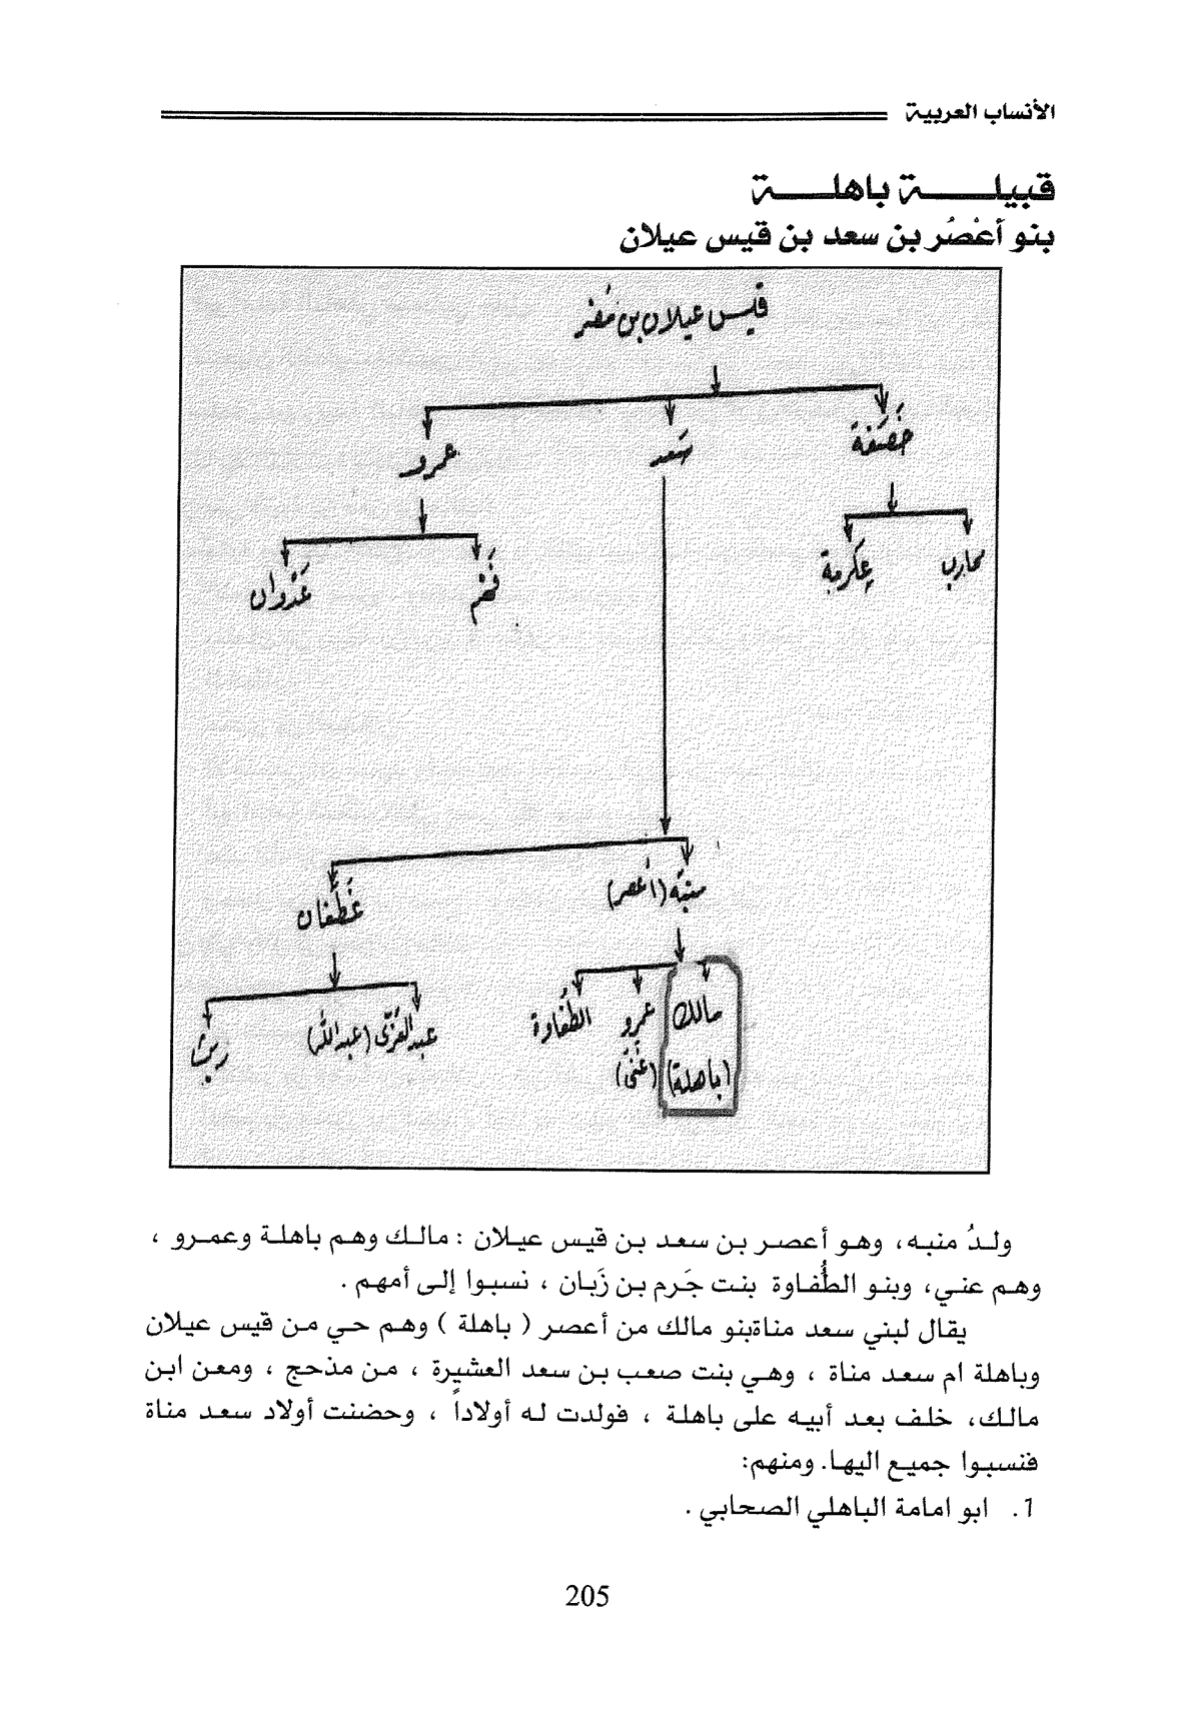 الأنساب العربية
قبيلـــــة باهلـــــة
بنو أعْصُر بن سعد بن قيس عيلان
قيس عيلان بن مُضر
خَصَفَة
سَعد
عمرو
محارب
عِكرمة
فَهْم
عَدْوان
منبّه (أعصر)
غَطَفان
مالك
عمرو
الطُفاوة
(باهلة)
(غَنى)
عبد العُزّى (عبد الله)
ريث
ولـدُ منبـه، وهـو أعصـر بـن سعـد بـن قيـس عيـلان : مالـك وهـم باهلـة وعمـرو ،
وهـم عنـي، وبنـو الطُّفـاوة بنـت جَـرم بـن زَبـان ، نسبـوا إلـى أمهـم .
يقال لبني سعد مناةبنو مالك من أعصر ( باهلة ) وهـم حـي مـن قيـس عيلان
وباهلة ام سعـد منـاة ، وهـي بنـت صعـب بـن سعـد العشيـرة ، مـن مذحـج ، ومعـن ابـن
مالـك، خلـف بعـد أبيـه علـى باهلـة ، فولـدت لـه أولاداً ، وحضنـت أولاد سعـد منـاة
فنسبـوا جميـع اليهـا. ومنهـم:
1. ابو امامة الباهلي الصحابي .
205